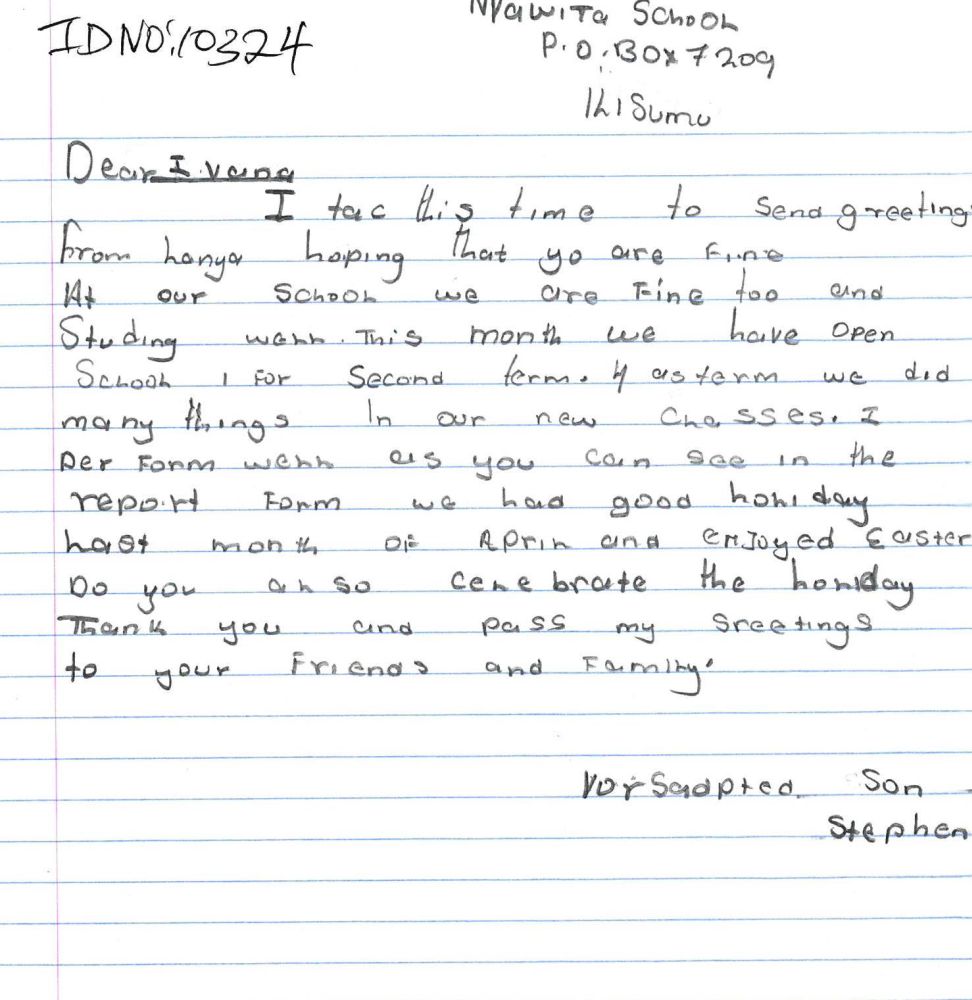 Nyawita School
IDNO:10324
P.O.BOX 7209
KISumu
Dear I.vana
I tac this time to Send greeting
From kenya hoping that yo are Fine
At our School we are Fine too and
Studing well. This month we have Open
School 1 For Second term. Last term we did
many things In our new Classes. I
perForm well as you can see in the
report Form we had good holiday
last month of April and enjoyed Easter
Do you also celebrate the holiday
Thank you and pass my Sreetings
to your Friends and Family.
YorSadpted Son
Stephen